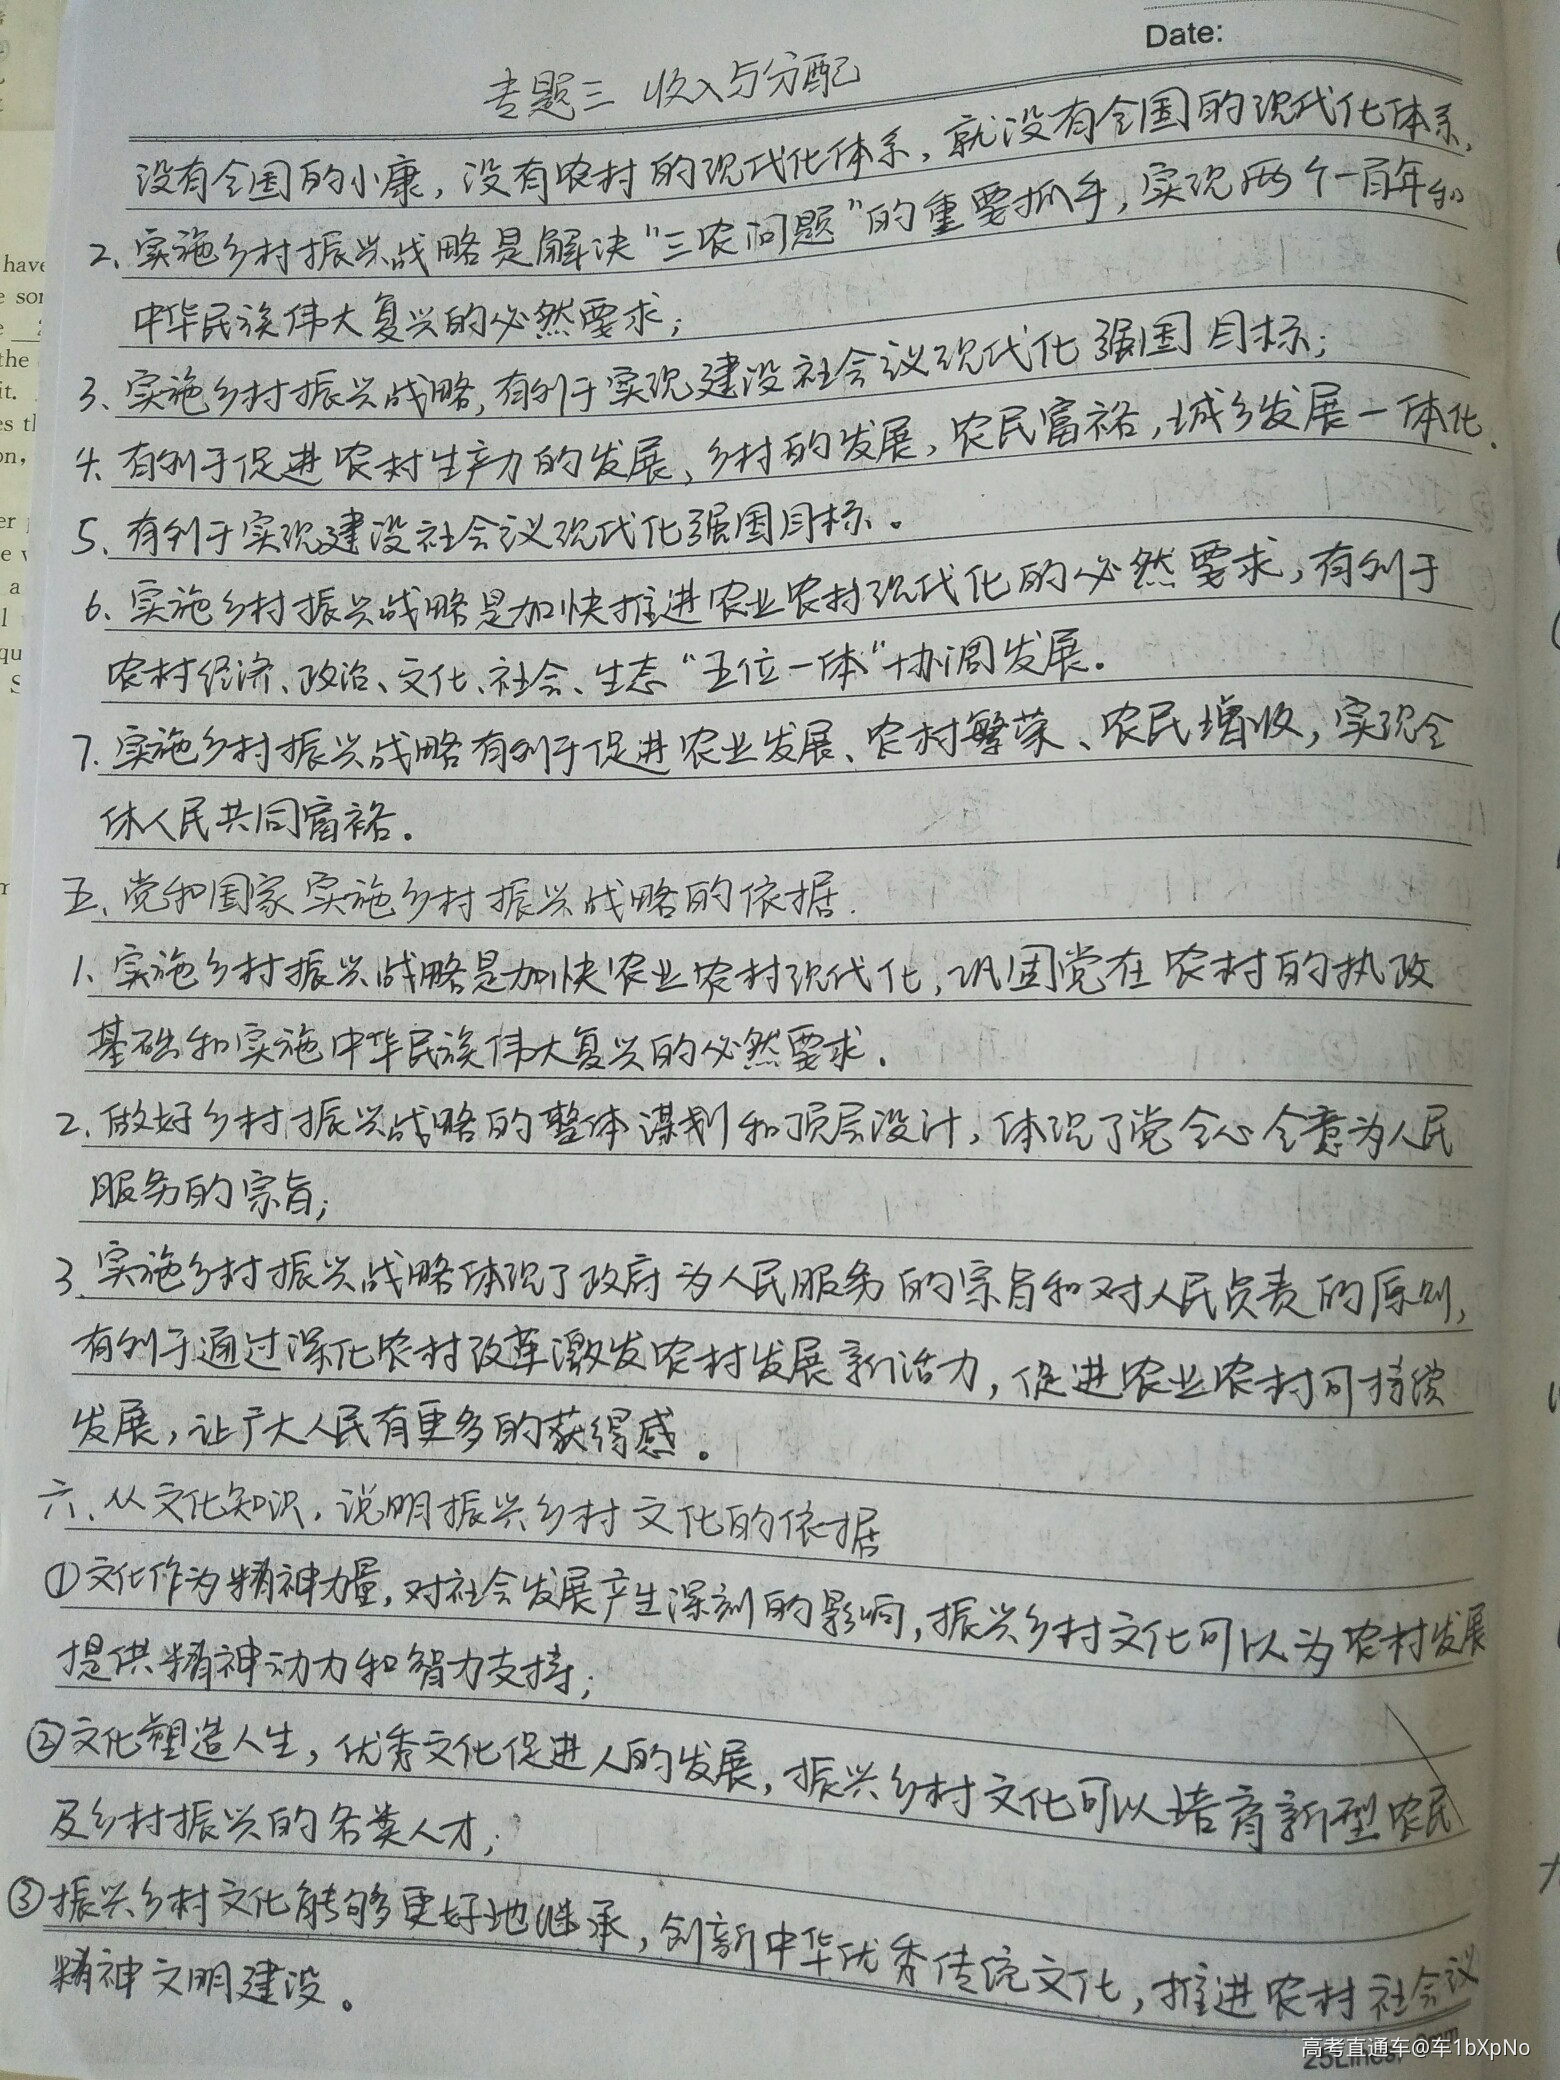 Date:
专题三 收入与分配
没有全国的小康，没有农村的现代化体系，就没有全国的现代化体系，
2、实施乡村振兴战略是解决“三农问题”的重要抓手，实现两个一百年和
中华民族伟大复兴的必然要求；
3、实施乡村振兴战略，有利于实现建设社会议现代化强国目标；
4、有利于促进农村生产力的发展、乡村的发展，农民富裕，城乡发展一体化.
5、有利于实现建设社会议现代化强国目标。
6、实施乡村振兴战略是加快推进农业农村现代化的必然要求，有利于
农村经济、政治、文化、社会、生态“五位一体”协调发展.
7.实施乡村振兴战略有利于促进农业发展、农村繁荣、农民增收，实现全
体人民共同富裕。
五、党和国家实施乡村振兴战略的依据.
1、实施乡村振兴战略是加快农业农村现代化，巩固党在农村的执政
基础和实施中华民族伟大复兴的必然要求.
2、做好乡村振兴战略的整体谋划和顶层设计，体现了党全心全意为人民
服务的宗旨；
3、实施乡村振兴战略体现了政府为人民服务的宗旨和对人民负责的原则，
有利于通过深化农村改革激发农村发展新活力，促进农业农村可持续
发展，让广大人民有更多的获得感。
六、从文化知识，说明振兴乡村文化的依据
①文化作为精神力量，对社会发展产生深刻的影响，振兴乡村文化可以为农村发展
提供精神动力和智力支持；
②文化塑造人生，优秀文化促进人的发展，振兴乡村文化可以培育新型农民
及乡村振兴的各类人才；
③振兴乡村文化能够更好地继承，创新中华优秀传统文化，推进农村社会议
精神文明建设。
高考直通车@车1bXpNo